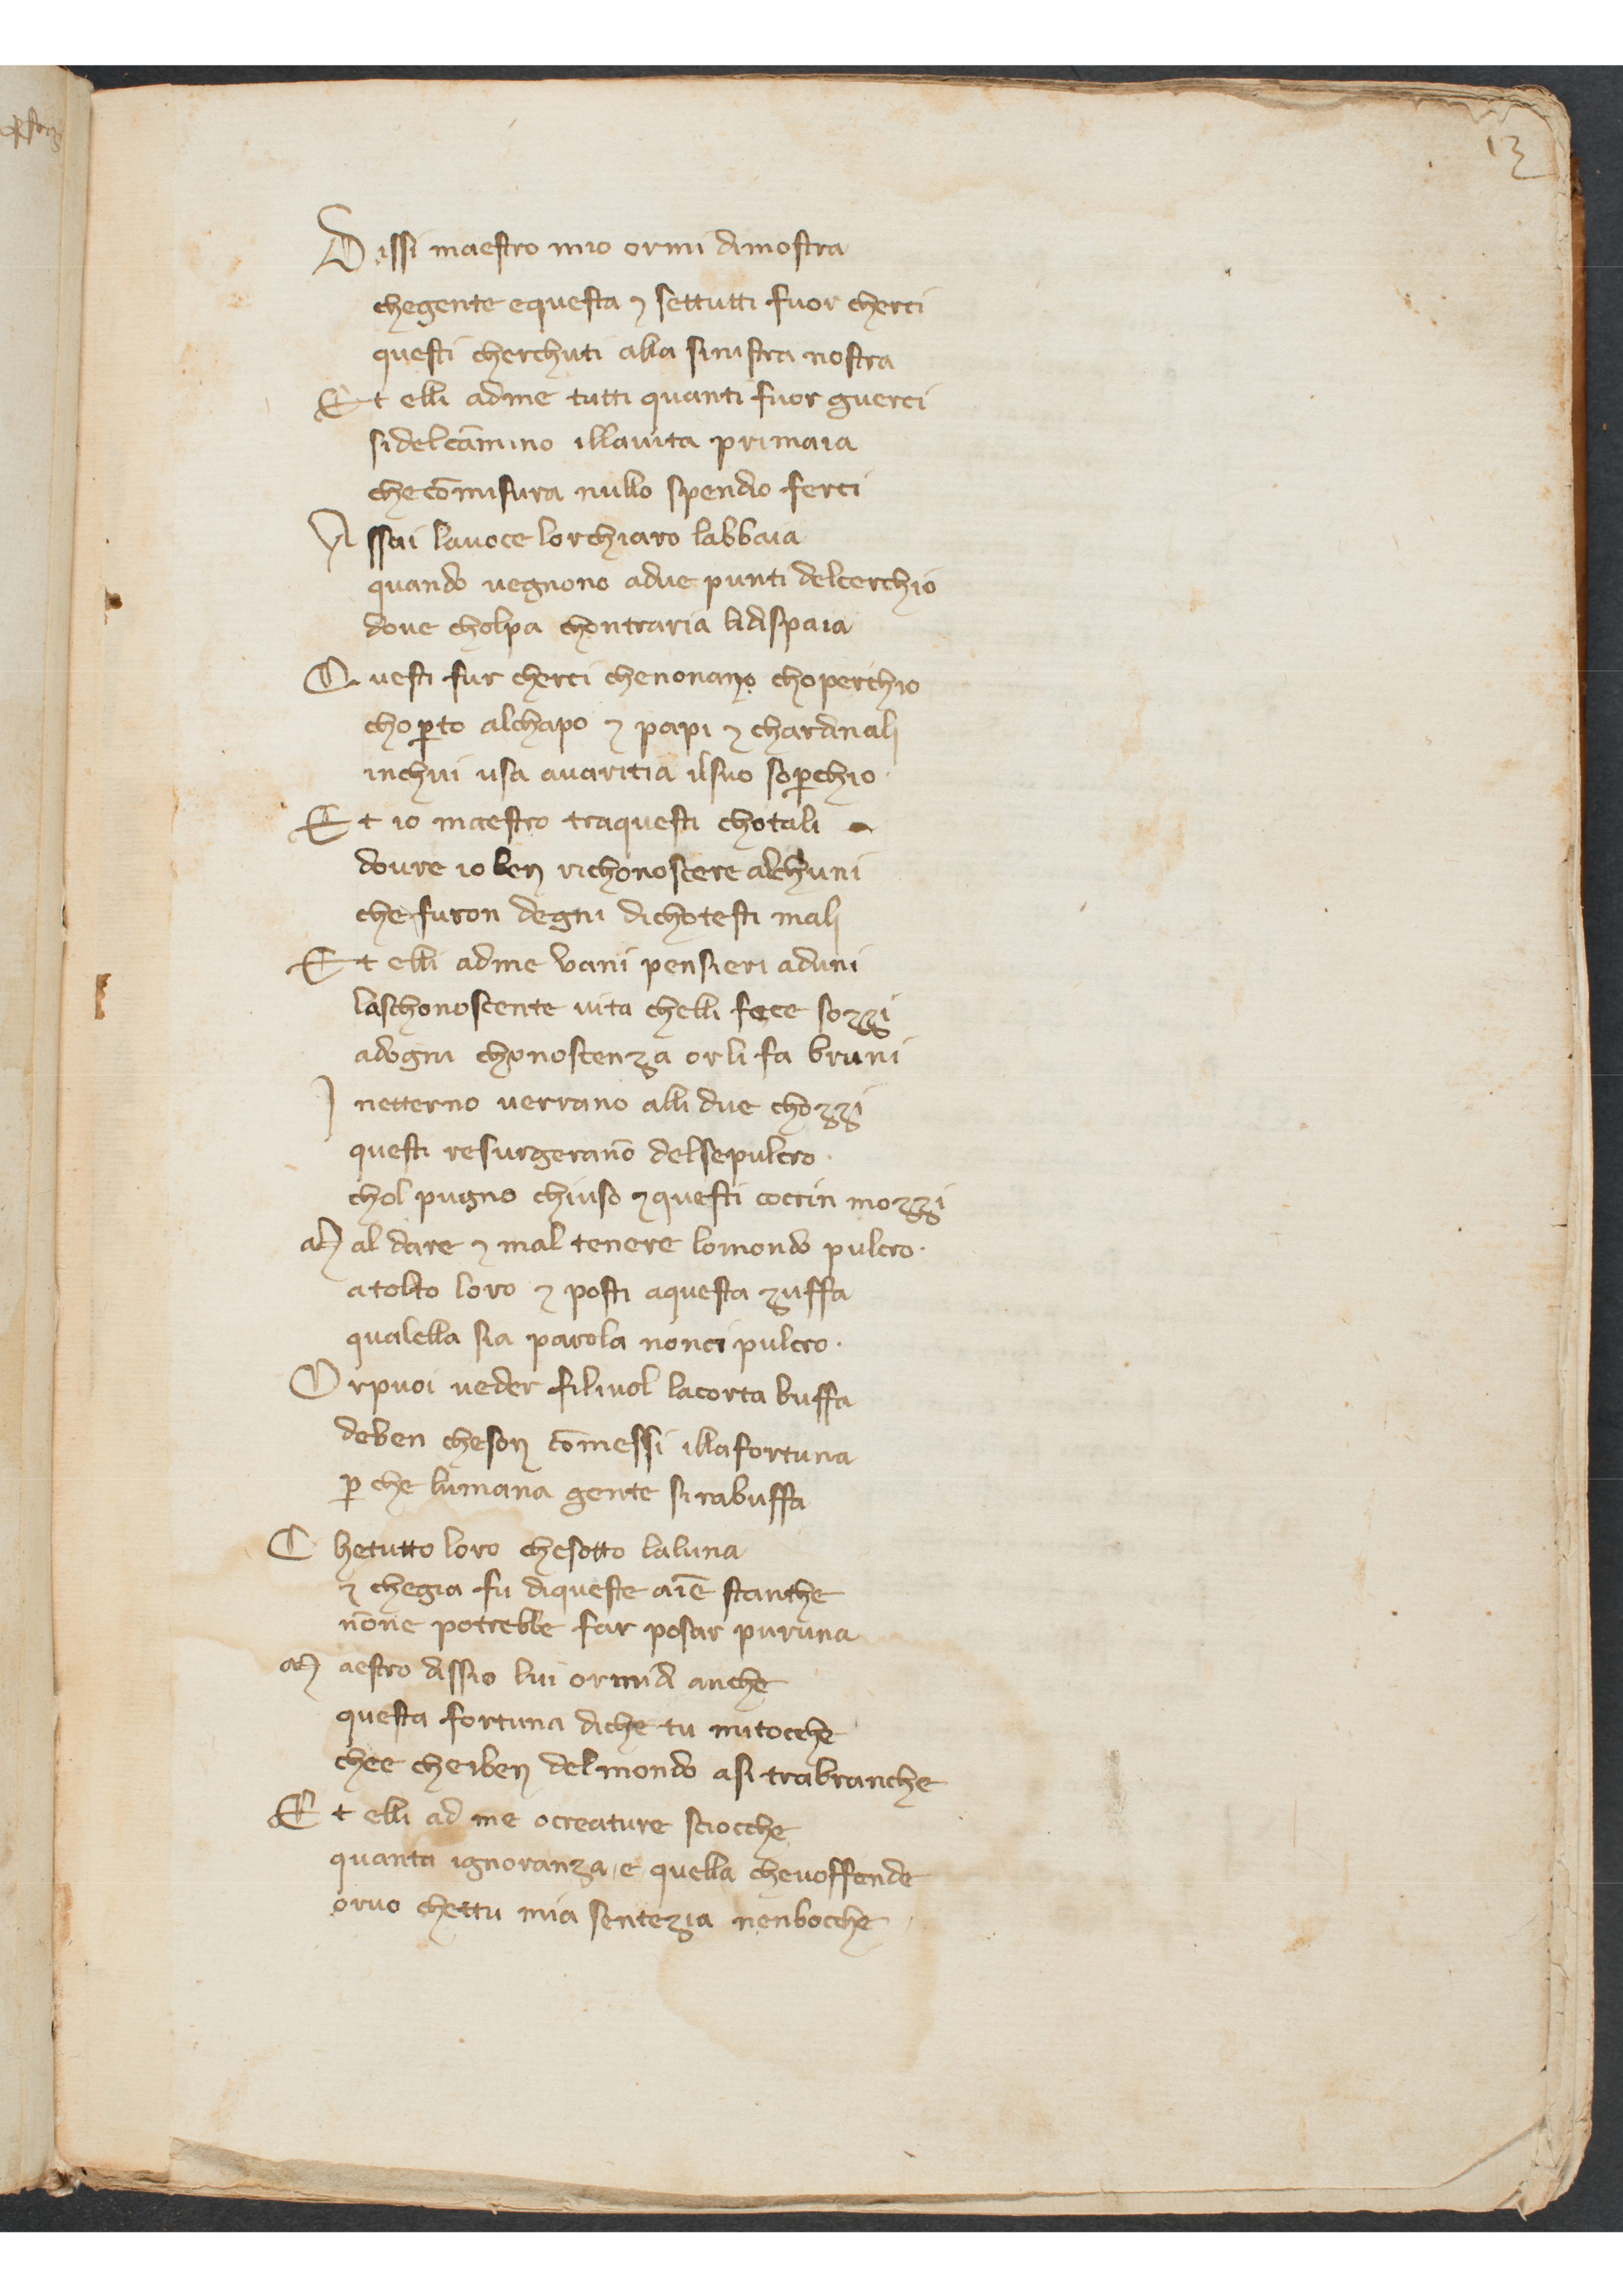 13
Dissi maestro mio ormi dimostra
chegente equesta ⁊ settutti fuor cherci
questi cherchuti alla sinistra nostra
Et elli adme tutti quanti fuor guerci
sidelcãmino illauita primaia
checõmisura nullo spendio ferci
Assai lauoce lorchiaro labbaia
quando uegnono adue punti delcerchio
doue cholpa chontraria lidispaia
Questi fur cherci chenonano choperchio
choꝑto alchapo ⁊ papi ⁊ chardinali
inchui usa auaritia ilsuo soꝑchio
Et io maestro traquesti chotali
doure io ben richonoscere alchuni
che furon degni dichotesti mali
Et elli adme vani pensieri aduni
laschonoscente uita chelli fece sozzi
adogni chonoscenza orli fa bruni
Inetterno uerrano alli due chozzi
questi resurgerano delsepulcro.
chol pugno chiuso ⁊questi coccin mozzi
Mal dare ⁊ mal tenere lomondo pulcro.
atolto loro ⁊ posti aquesta zuffa
qualella sia parola nonci pulcro.
Orpuoi ueder filiuol lacorta buffa
deben cheson cõmessi illafortuna
ꝑ che lumana gente sirabuffa
Chetutto loro chesotto laluna
⁊ chegia fu diqueste aiẽ stanche
nõne potrebbe far posar puruna
Maestro dissio lui ormidi anche
questa fortuna diche tu mitocche
chee cheiben delmondo asi trabranche
Et elli ad me ocreature sciocche
quanta ignoranza e quella cheuoffende
oruo chettu mia sentezia nenbocche